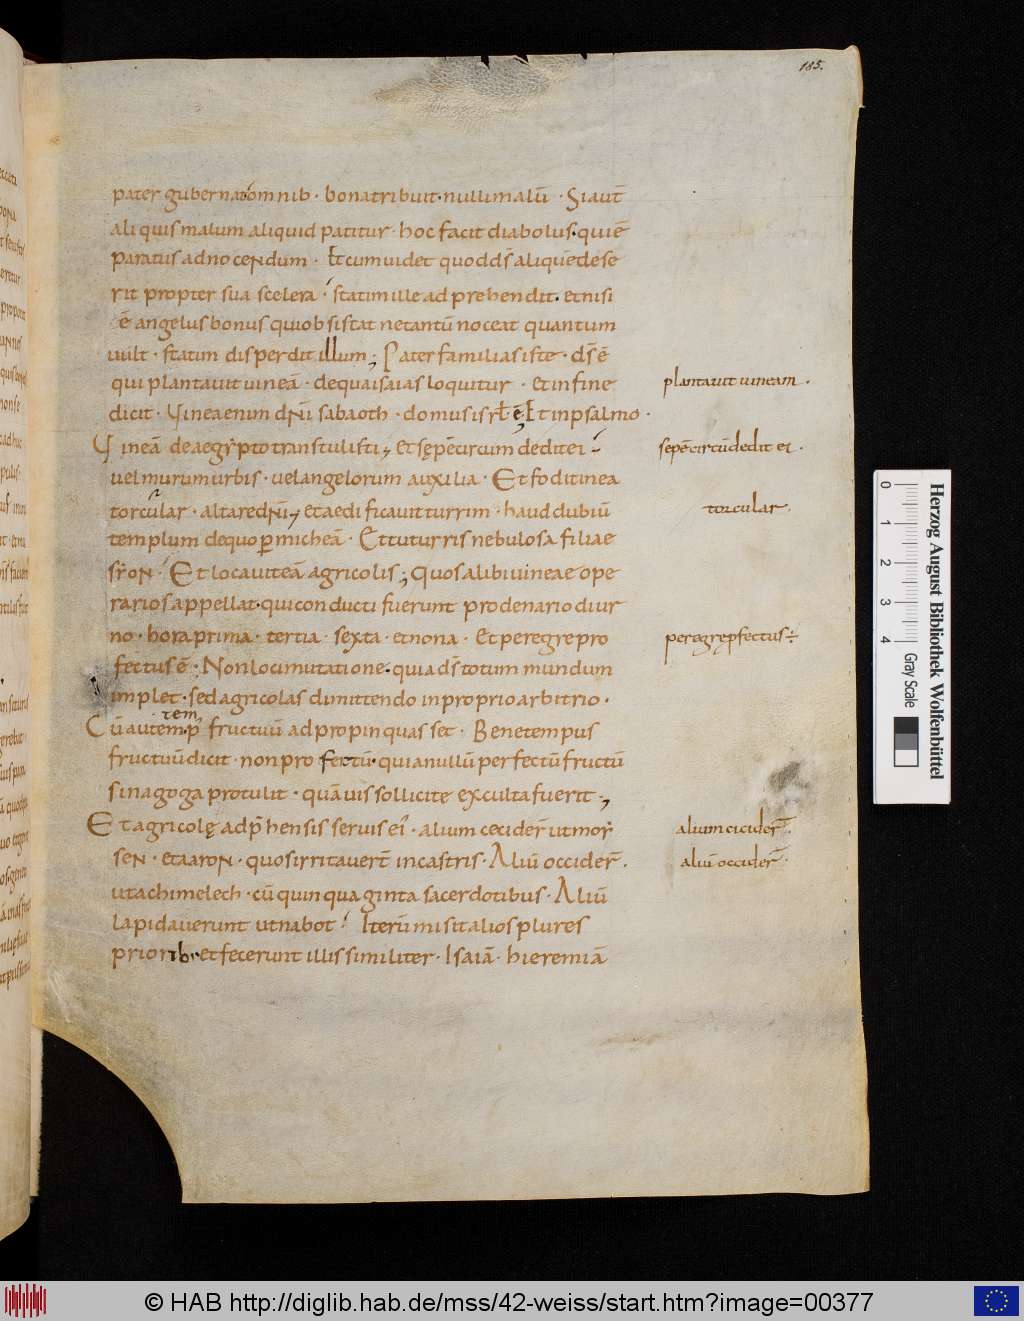 185.
pater gubernat omnib· bona tribuit· nulli malū · Siaut̄
aliquis malum aliquid patitur· hoc facit diabolus· qui ē
paratus ad nocendum · Et cum uidet quod d̄s aliquē dese
rit propter sua scelera · statim ille adprehendit· et nisi
ē angelus bonus qui obsistat ne tantū noceat quantum
uult · statim disperdit illum; Paterfamilias iste· d̄s ē
qui plantauit uineā · de qua isaias loquitur · et in fine
dicit · Uinea enim dn̄i sabaoth · domus isrł ē; Et in psalmo ·
Uineā de aegypto transtulisti; et sepē circumdedit ei
uel murum urbis · uel angelorum auxilia · Et fodit in ea
torcular · altare dn̄i; et aedificauit turrim · haud dubiū
templum de quo ꝑ micheā · Et tu turris nebulosa filiae
syon · Et locauit eā agricolis; Quos alibi uineae ope
rarios appellat· qui conducti fuerunt pro denario diur
no · hora prima · tertia · sexta · et nona · Et peregre pro
fectus ē · Non loci mutatione· quia d̄s totum mundum
implet· sed agricolas dimittendo in proprio arbitrio ·
tem
Cū autem p̄ fructuū adpropinquasset · Bene tempus
fructuū dicit · non profectū· quia nullū perfectū fructū
sinagoga protulit · quāuis sollicite exculta fuerit;
Et agricolę adp̄hensis seruis ei · alium cecider̄ ut moy
sen · et aaron · quos irritauer̄t in castris· Aliū occider̄ ·
ut achimelech · cū quinquaginta sacerdotibus · Aliū
lapidauerunt ut nabot · Iterū misit alios plures
priorib; et fecerunt illis similiter · Isaiā · hieremiā
plantauit uineam ·
sepē circūdedit ei ·
torcular·
peregrę ꝓfectus
alium cicider̄ ·
aliū occider̄ ·
Herzog August Bibliothek Wolfenbüttel
0 1 2 3 4
Gray Scale
© HAB http://diglib.hab.de/mss/42-weiss/start.htm?image=00377